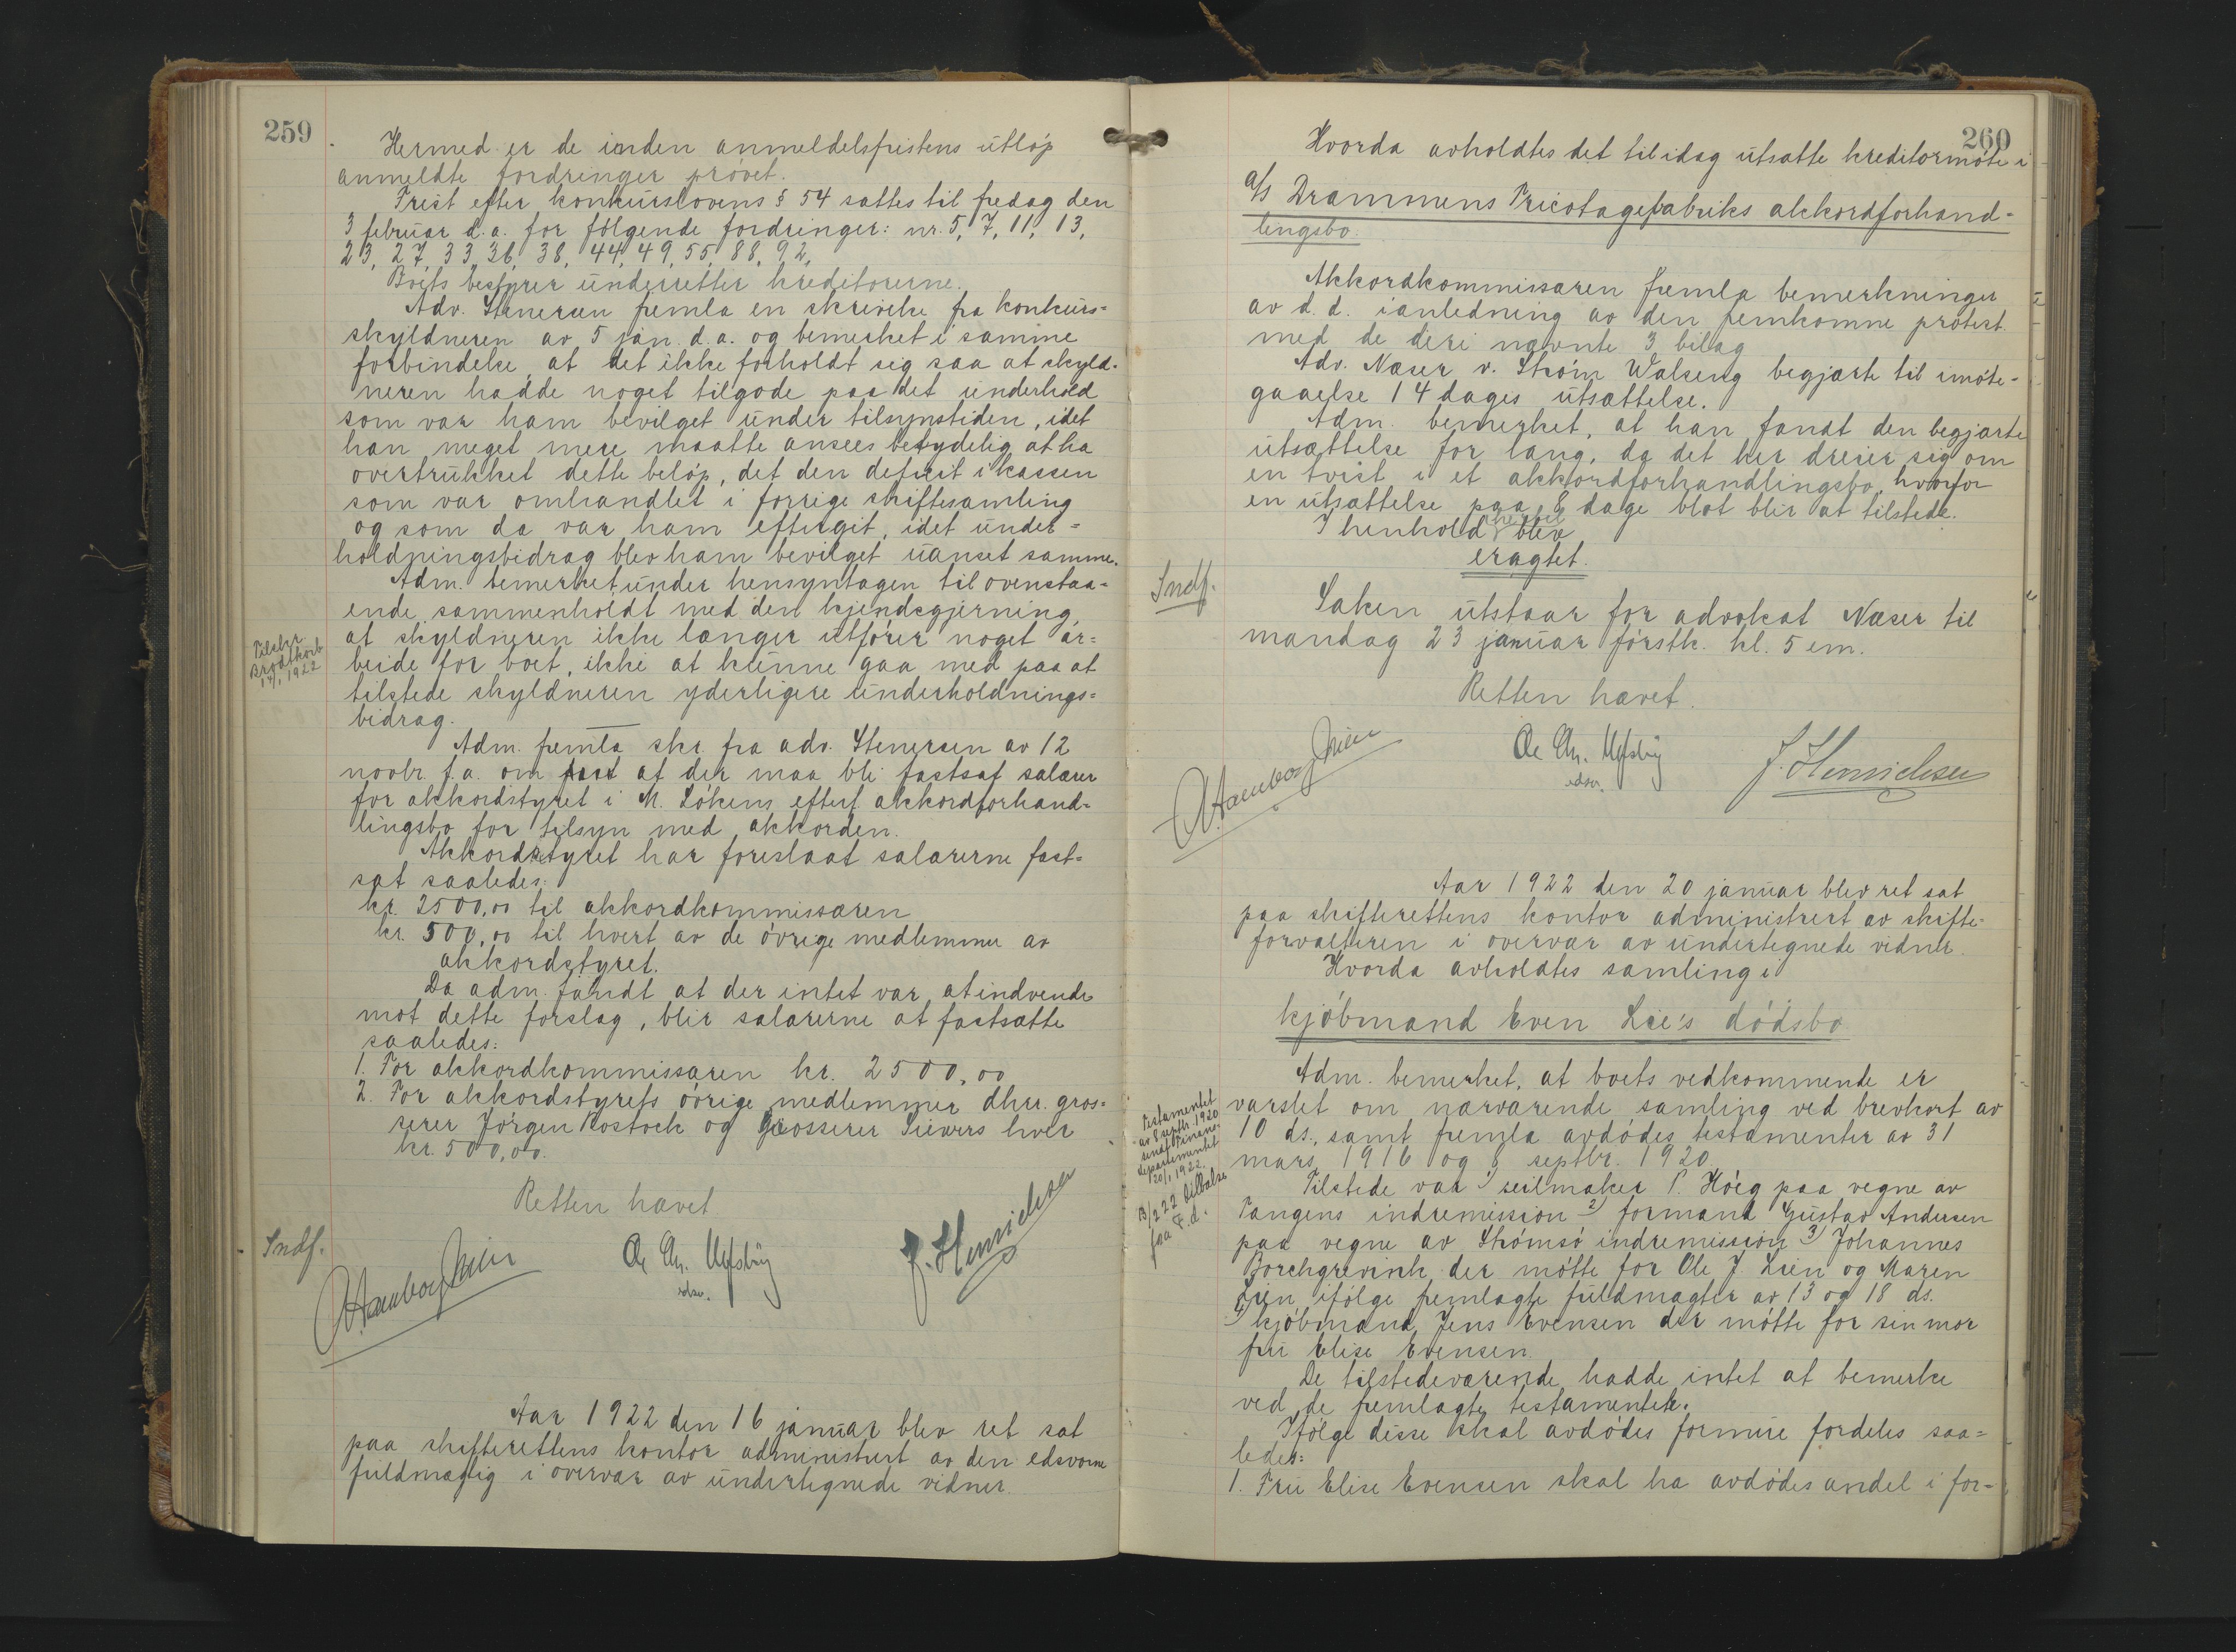 259
Hermed er de inden anmeldelsfristens utløp
anmeldte fordringer prøvet.
Frist efter konkurslovens § 54 sattes til fredag den
3 februar d.a. for følgende fordringer: nr. 5, 7, 11, 13,
23, 27, 33, 36, 38, 44, 49, 55, 88, 92.
Boets bestyrer underretter kreditorerne.
Adv. Stenersen fremla en skrivelse fra konkurs=
skyldneren av 5 jan. d.a. og bemerket i samme
forbindelse, at det ikke forholdt sig saa at skyld=
neren hadde noget tilgode paa det underhold
som var ham bevilget under tilsynstiden, idet
han meget mere maatte ansees betydelig at ha
overtrukket dette beløp, det den deficit i kassen
som var omhandlet i forrige skiftesamling
og som da var ham eftergit, idet under=
holdningsbidrag blev ham bevilget uanset samme.
Adm. bemerket under hensyntagen til ovenstaa=
ende, sammenholdt med den kjendsgjerning,
at skyldneren ikke længer utfører noget ar=
beide for boet, ikke at kunne gaa med paa at
tilstede skyldneren yderligere underholdnings=
bidrag.
Tilskr
Brodtkorb
14/1 1922
Adm. fremla skr. fra adv. Stenersen av 12
novbr. f.a. om at der maa bli fastsat salærer
for akkordstyret i M. Løkens efterf. akkordforhand=
lingsbo for tilsyn med akkorden.
Akkordstyret har foreslaat salærerne fast=
sat saaledes:
kr. 2500,00 til akkordkommissæren
kr. 500,00 til hvert av de øvrige medlemmer av
akkordstyret.
Da adm. fandt at der intet var at indvende
mot dette forslag, blir salærerne at fastsætte
saaledes:
1. For akkordkommissæren kr. 2500,00
2. For akkordstyrets øvrige medlemmer dhrr. gros=
serer Jørgen Kostock og grosserer Sievers hver
kr. 500,00.
Retten hævet.
Indf.
J. Henrichsen
edsv.
Aar 1922 den 16 januar blev ret sat
paa skifterettens kontor administrert av den edsvorne
fuldmægtig i overvær av undertegnede vidner.
260
Hvorda avholdtes det til idag utsatte kreditormøte i
a/s Drammens Tricotagefabriks akkordforhand=
lingsbo.
Akkordkommissæren fremla bemerkninger
av d.d. i anledning av den fremkomne protest.
med de deri nævnte 3 bilag
Adv. Næser v. Strøm Walseng begjærte til imøte=
gaaelse 14 dages utsættelse.
Adm. bemerket, at han fandt den begjærte
utsættelse for lang, da det her dreier sig om
en tvist i et akkordforhandlingsbo, hvorfor
en utsættelse paa 8 dage blot blir at tilstede.
I henhold hertil blev
eragtet.
Indf.
Saken utstaar for advokat Næser til
mandag 23 januar førstk. kl. 5 em.
Retten hævet.
edsv.
J. Henrichsen
Aar 1922 den 20 januar blev ret sat
paa skifterettens kontor administrert av skifte=
forvalteren i overvær av undertegnede vidner.
Hvorda avholdtes samling i
kjøbmand Even Lie's dødsbo
Adm. bemerket, at boets vedkommende er
varslet om nærværende samling ved brevkort av
10 ds., samt fremla avdødes testamenter av 31
mars 1916 og 8 septbr. 1920.
Testamentet
av 8 septb. 1920
sendt Finans-
departementet
20/1 1922.
13/2 22 tilbake
fra F.d.
Tilstede var 1) seilmaker P. Høeg paa vegne av
Tangens indremission 2) formand Gustav Andersen
paa vegne av Strømsø indremission 3) Johannes
Borchgrevink der møtte for Ole J. Lien og Maren
Lien ifølge fremlagte fuldmagter av 13 og 18 ds.
4) kjøbmand Jens Evensen der møtte for sin mor
fru Elise Evensen.
De tilstedeværende hadde intet at bemerke
ved de fremlagte testamenter.
Ifølge disse skal avdødes formue fordeles saa=
ledes:
1. Fru Elise Evensen skal ha avdødes andel i for=